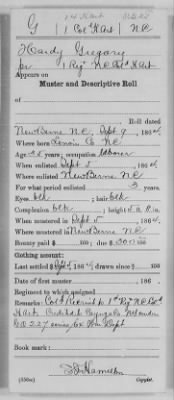 G | 1 Col'd H'art | N C
Hardy Gregory
Pvt, 1 Reg't N C Col'd H Art
Appears on
Muster and Descriptive Roll
of
Roll dated
New Berne N.C., Sept 9, 1864.
Where born Lenoir Co. N.C.
Age 25 years; occupation laborer
When enlisted Sept 5, 1864.
Where enlisted New Berne N.C.
For what period enlisted 3 years.
Eyes blk; hair blk
Complexion blk; height 5 ft. 8 in.
When mustered in Sept 5, 1864.
Where mustered in New Berne N.C.
Bounty paid $ 100; due $ 100
Clothing account:
Last settled 186 ; drawn since $ 100
Date of first muster 186 .
Regiment to which assigned
Remarks: Col'd Recruit for 1st Reg N.C. Col'd
H Art. Credited
G O 227 series War Dept
Book mark:
(350c) Copyist.